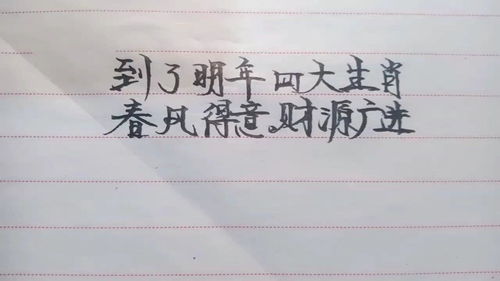 到了明年四大生肖
春风得意财源广进